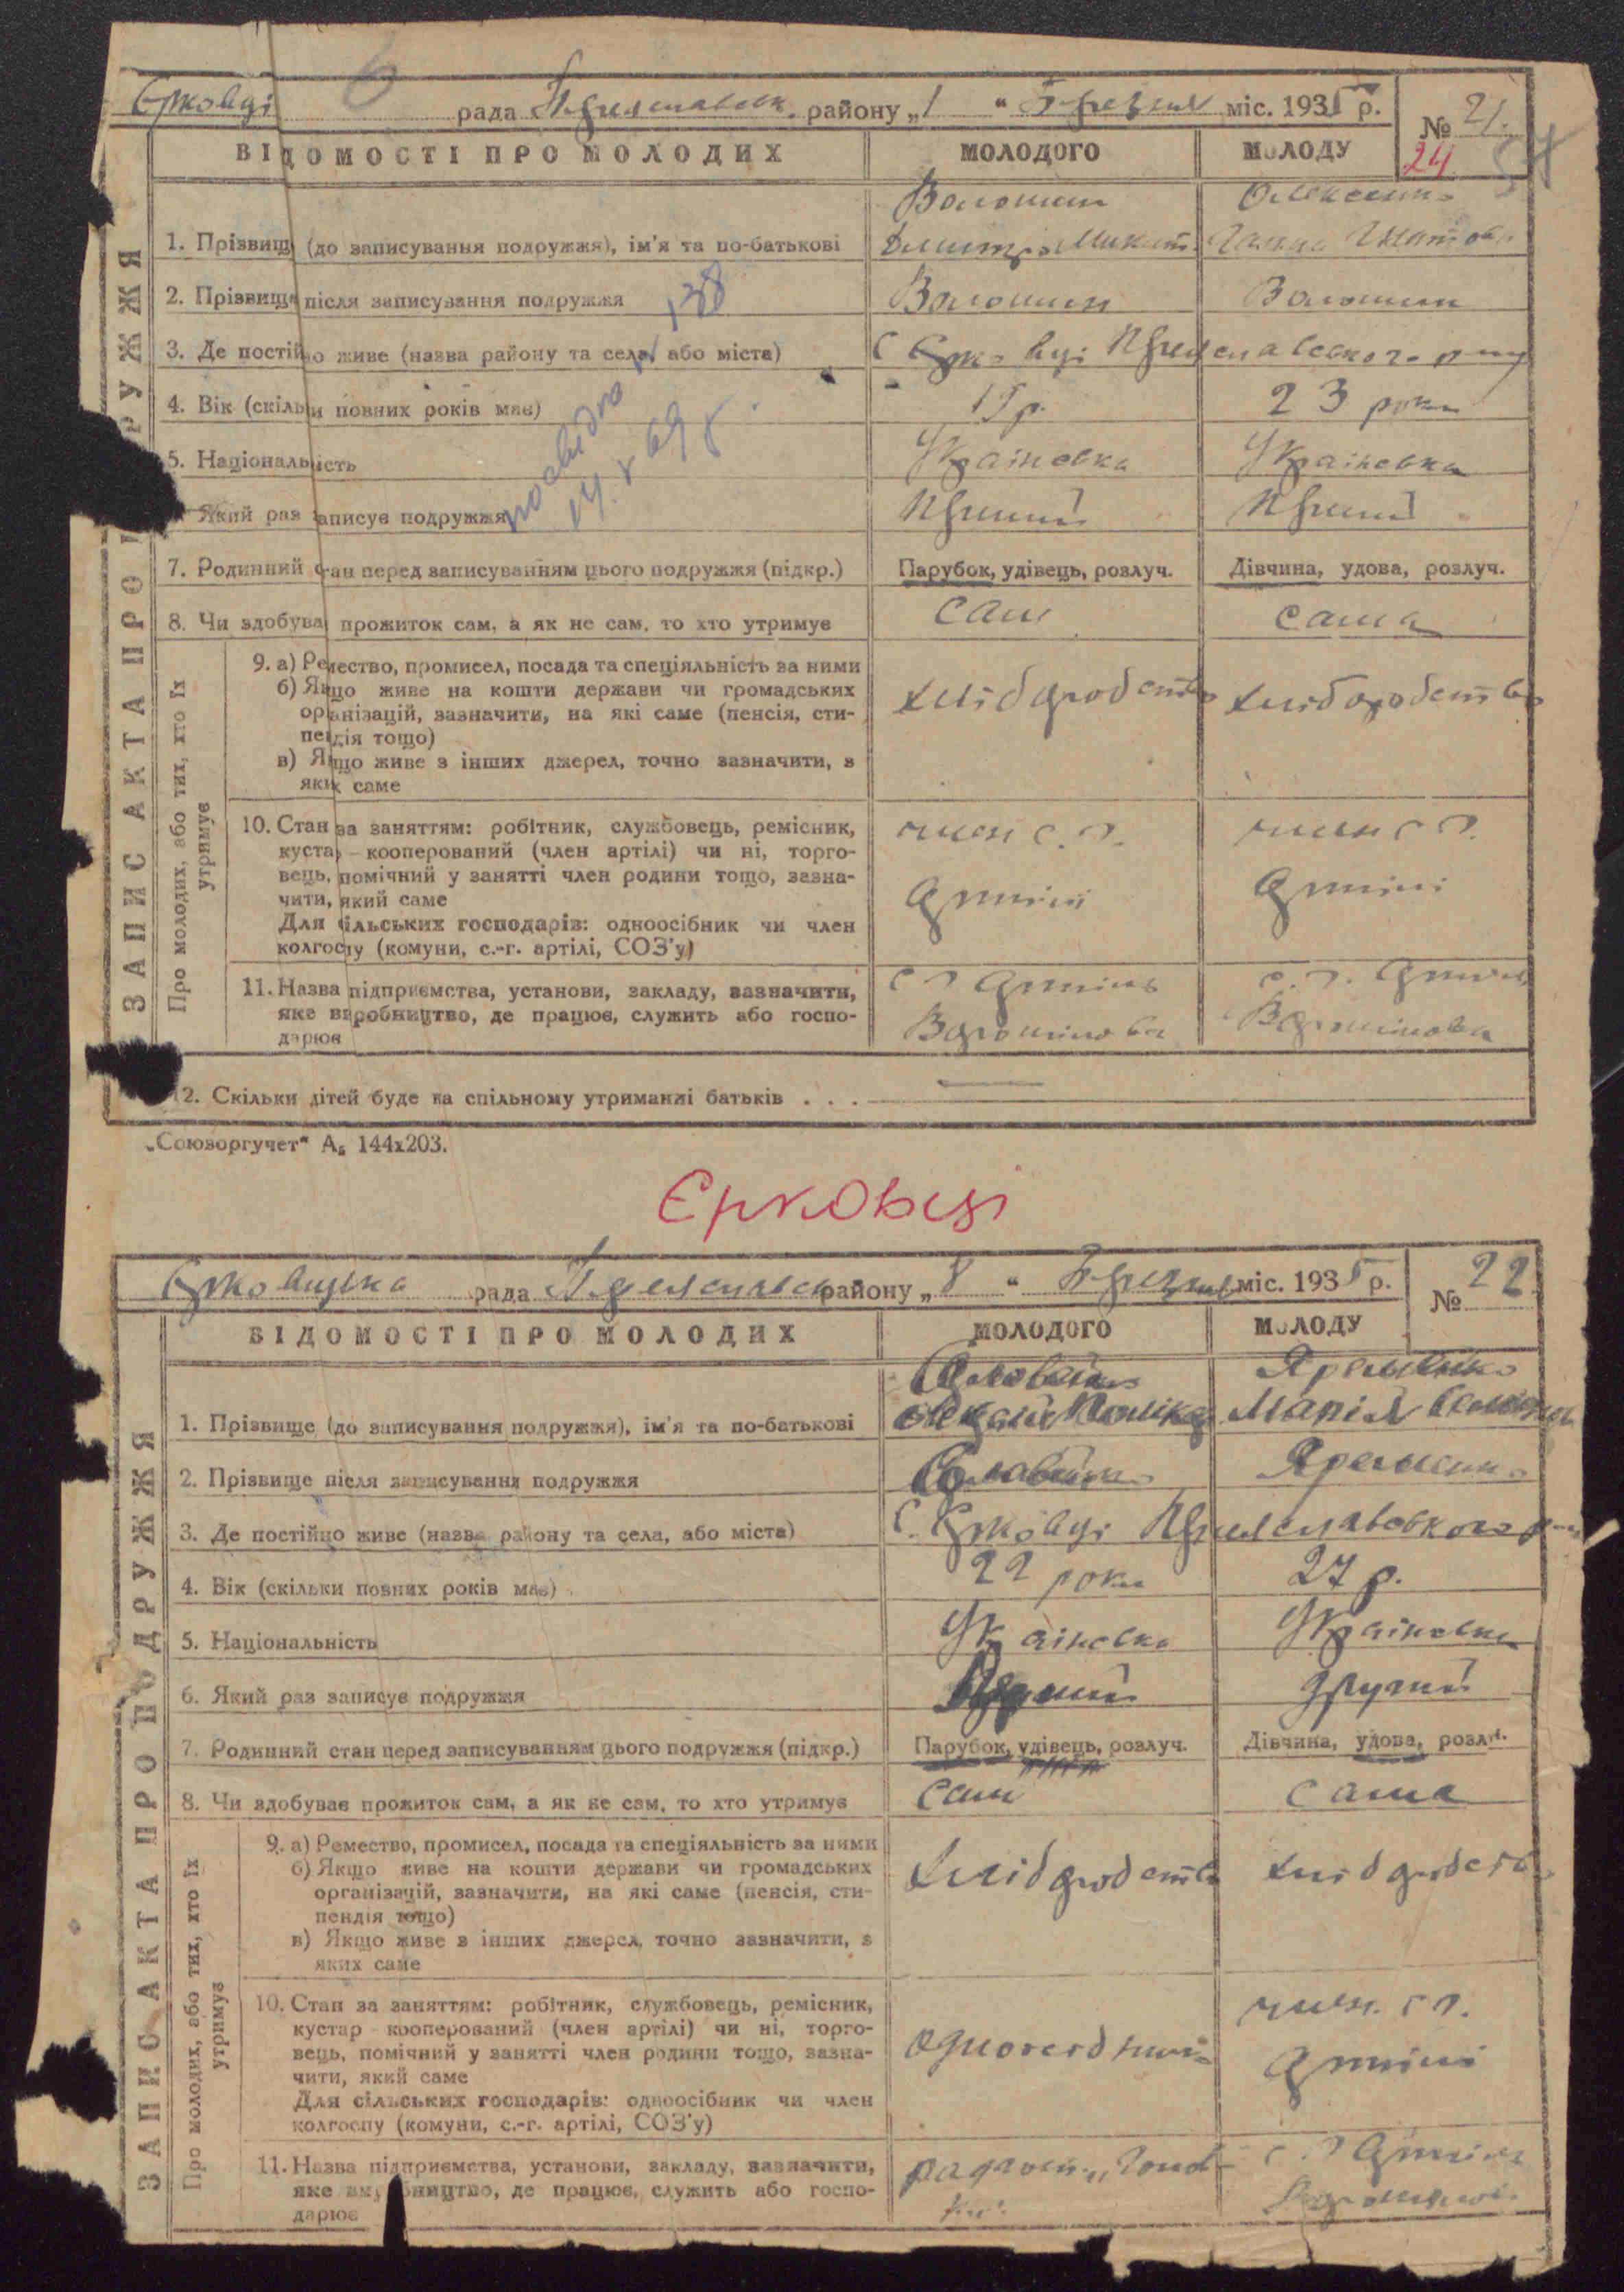 Єрковці рада Переяславськ. району „1“ Березня міс. 1935 р.
№ 21.
24
ВІДОМОСТІ ПРО МОЛОДИХ МОЛОДОГО МОЛОДУ
Волошин Олексєнко
1. Прізвище (до записування подружжя), ім'я та по-батькові Дмитро Микит. Ганна
2. Прізвище після записування подружжя Волошин Волошин
138
3. Де постійно живе (назва району та села, або міста) с Єрковці Переяславського р-ну
4. Вік (скільки повних років має) 19 р. 23 роки
5. Національність Українська Українська
Який раз записує подружжя Перший Перший
7. Родинний стан перед записуванням цього подружжя (підкр.) Парубок, удівець, розлуч. Дівчина, удова, розлуч.
8. Чи здобуває прожиток сам, а як не сам, то хто утримує сам сама
9. а) Ремество, промисел, посада та спеціяльність за ними
б) Якщо живе на кошти держави чи громадських хліборобство хліборобство
організацій, зазначити, на які саме (пенсія, сти-
пендія тощо)
в) Якщо живе з інших джерел, точно зазначити, з
яких саме
10. Стан за заняттям: робітник, службовець, ремісник, член с. г. член с г.
кустар – кооперований (член артілі) чи ні, торго-
вець, помічний у занятті член родини тощо, зазна- Артілі Артілі
чити, який саме
Для сільських господарів: одноосібник чи член
колгоспу (комуни, с.-г. артілі, СОЗ'у)
11. Назва підприємства, установи, закладу, зазначити, с г Артіль с. г. Артіль
яке виробництво, де працює, служить або госпо- Ворошілова Ворошілова
дарює
12. Скільки дітей буде на спільному утриманні батьків . . .
ЗАПИС АКТА ПРО
РУЖЖЯ
Про молодих, або тих, хто їх
утримує
„Союзоргучет“ А₅ 144х203.
Єрковці
Єрковецька рада Переяславськ району „8“ Березня міс. 1935 р.
№ 22
ВІДОМОСТІ ПРО МОЛОДИХ МОЛОДОГО МОЛОДУ
Яременко
1. Прізвище (до записування подружжя), ім'я та по-батькові Марія
2. Прізвище після записування подружжя Яременко
3. Де постійно живе (назва району та села, або міста) с. Єрковці Переяславського р-ну
4. Вік (скільки повних років має) 22 роки 27 р.
5. Національність Українська Українська
6. Який раз записує подружжя Перший Другий
7. Родинний стан перед записуванням цього подружжя (підкр.) Парубок, удівець, розлуч. Дівчина, удова, розлуч.
8. Чи здобуває прожиток сам, а як не сам, то хто утримує сам сама
9. а) Ремество, промисел, посада та спеціяльність за ними
б) Якщо живе на кошти держави чи громадських хліборобство хліборобств
організацій, зазначити, на які саме (пенсія, сти-
пендія тощо)
в) Якщо живе з інших джерел, точно зазначити, з
яких саме
10. Стан за заняттям: робітник, службовець, ремісник, член. с г.
кустар – кооперований (член артілі) чи ні, торго-
вець, помічний у занятті член родини тощо, зазна- одноосібник Артілі
чити, який саме
Для сільських господарів: одноосібник чи член
колгоспу (комуни, с.-г. артілі, СОЗ'у)
11. Назва підприємства, установи, закладу, зазначити, радгосп с г Артіль
яке виробництво, де працює, служить або госпо-
дарює
ЗАПИС АКТА ПРО ПОДРУЖЖЯ
Про молодих, або тих, хто їх
утримує